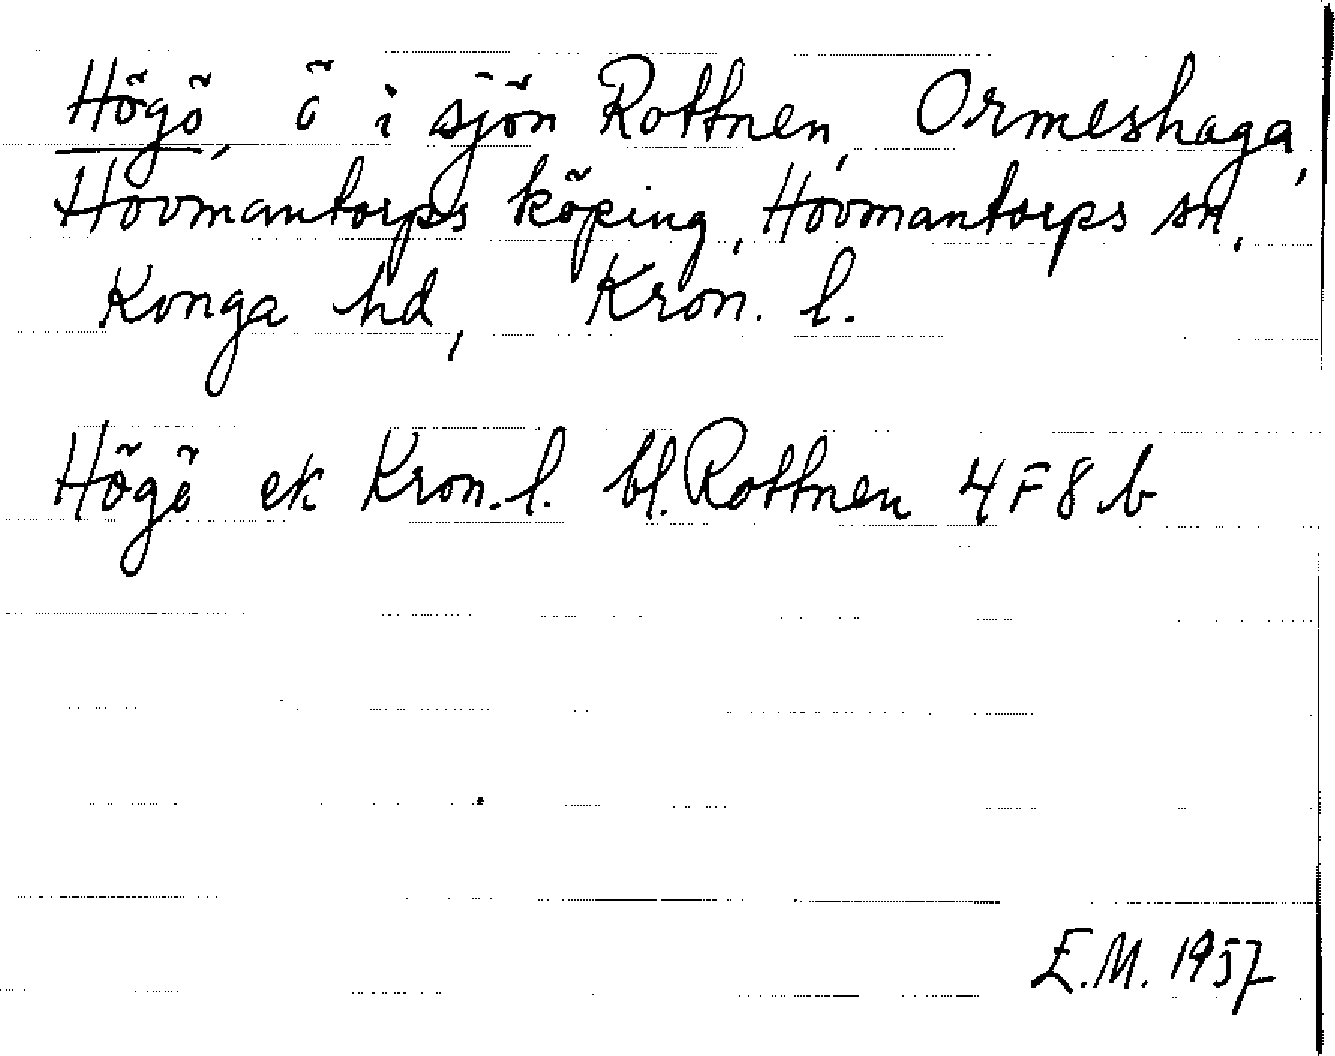 Högö, ö i sjön Rottnen, Ormeshaga,
Hovmantorps köping, Hovmantorps sn,
Konga hd, Kron. l.
Högö ek Kron. l. bl. Rottnen 4F8b
E.M. 1957